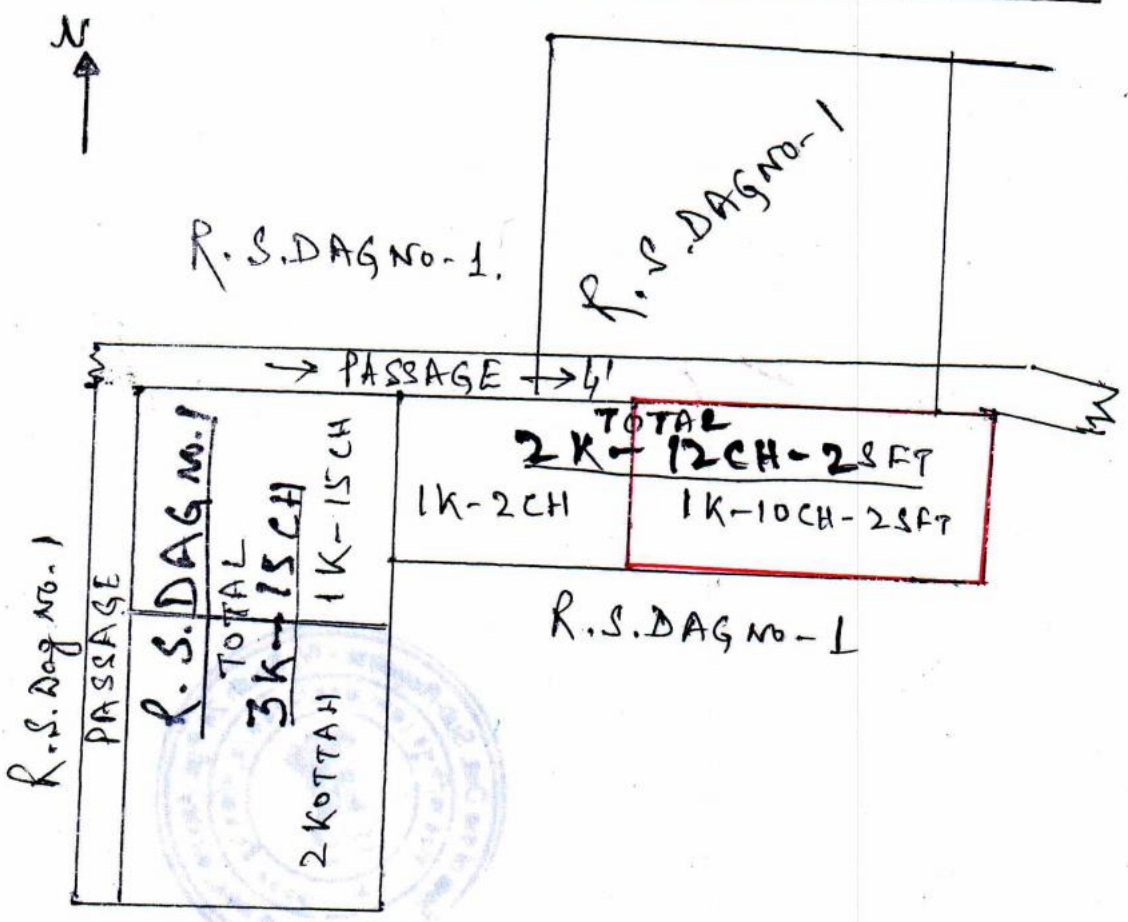 N
R.S.DAG NO-1.
R.S.DAG NO-1
→ PASSAGE → 4'
TOTAL
2K-12CH-2SFT
1K-2CH
1K-10CH-2SFT
R.S.DAG NO-1
R.S.Dag no.1
PASSAGE
R.S.DAG no.1
TOTAL
3K-15CH
1K-15CH
2KOTTAH